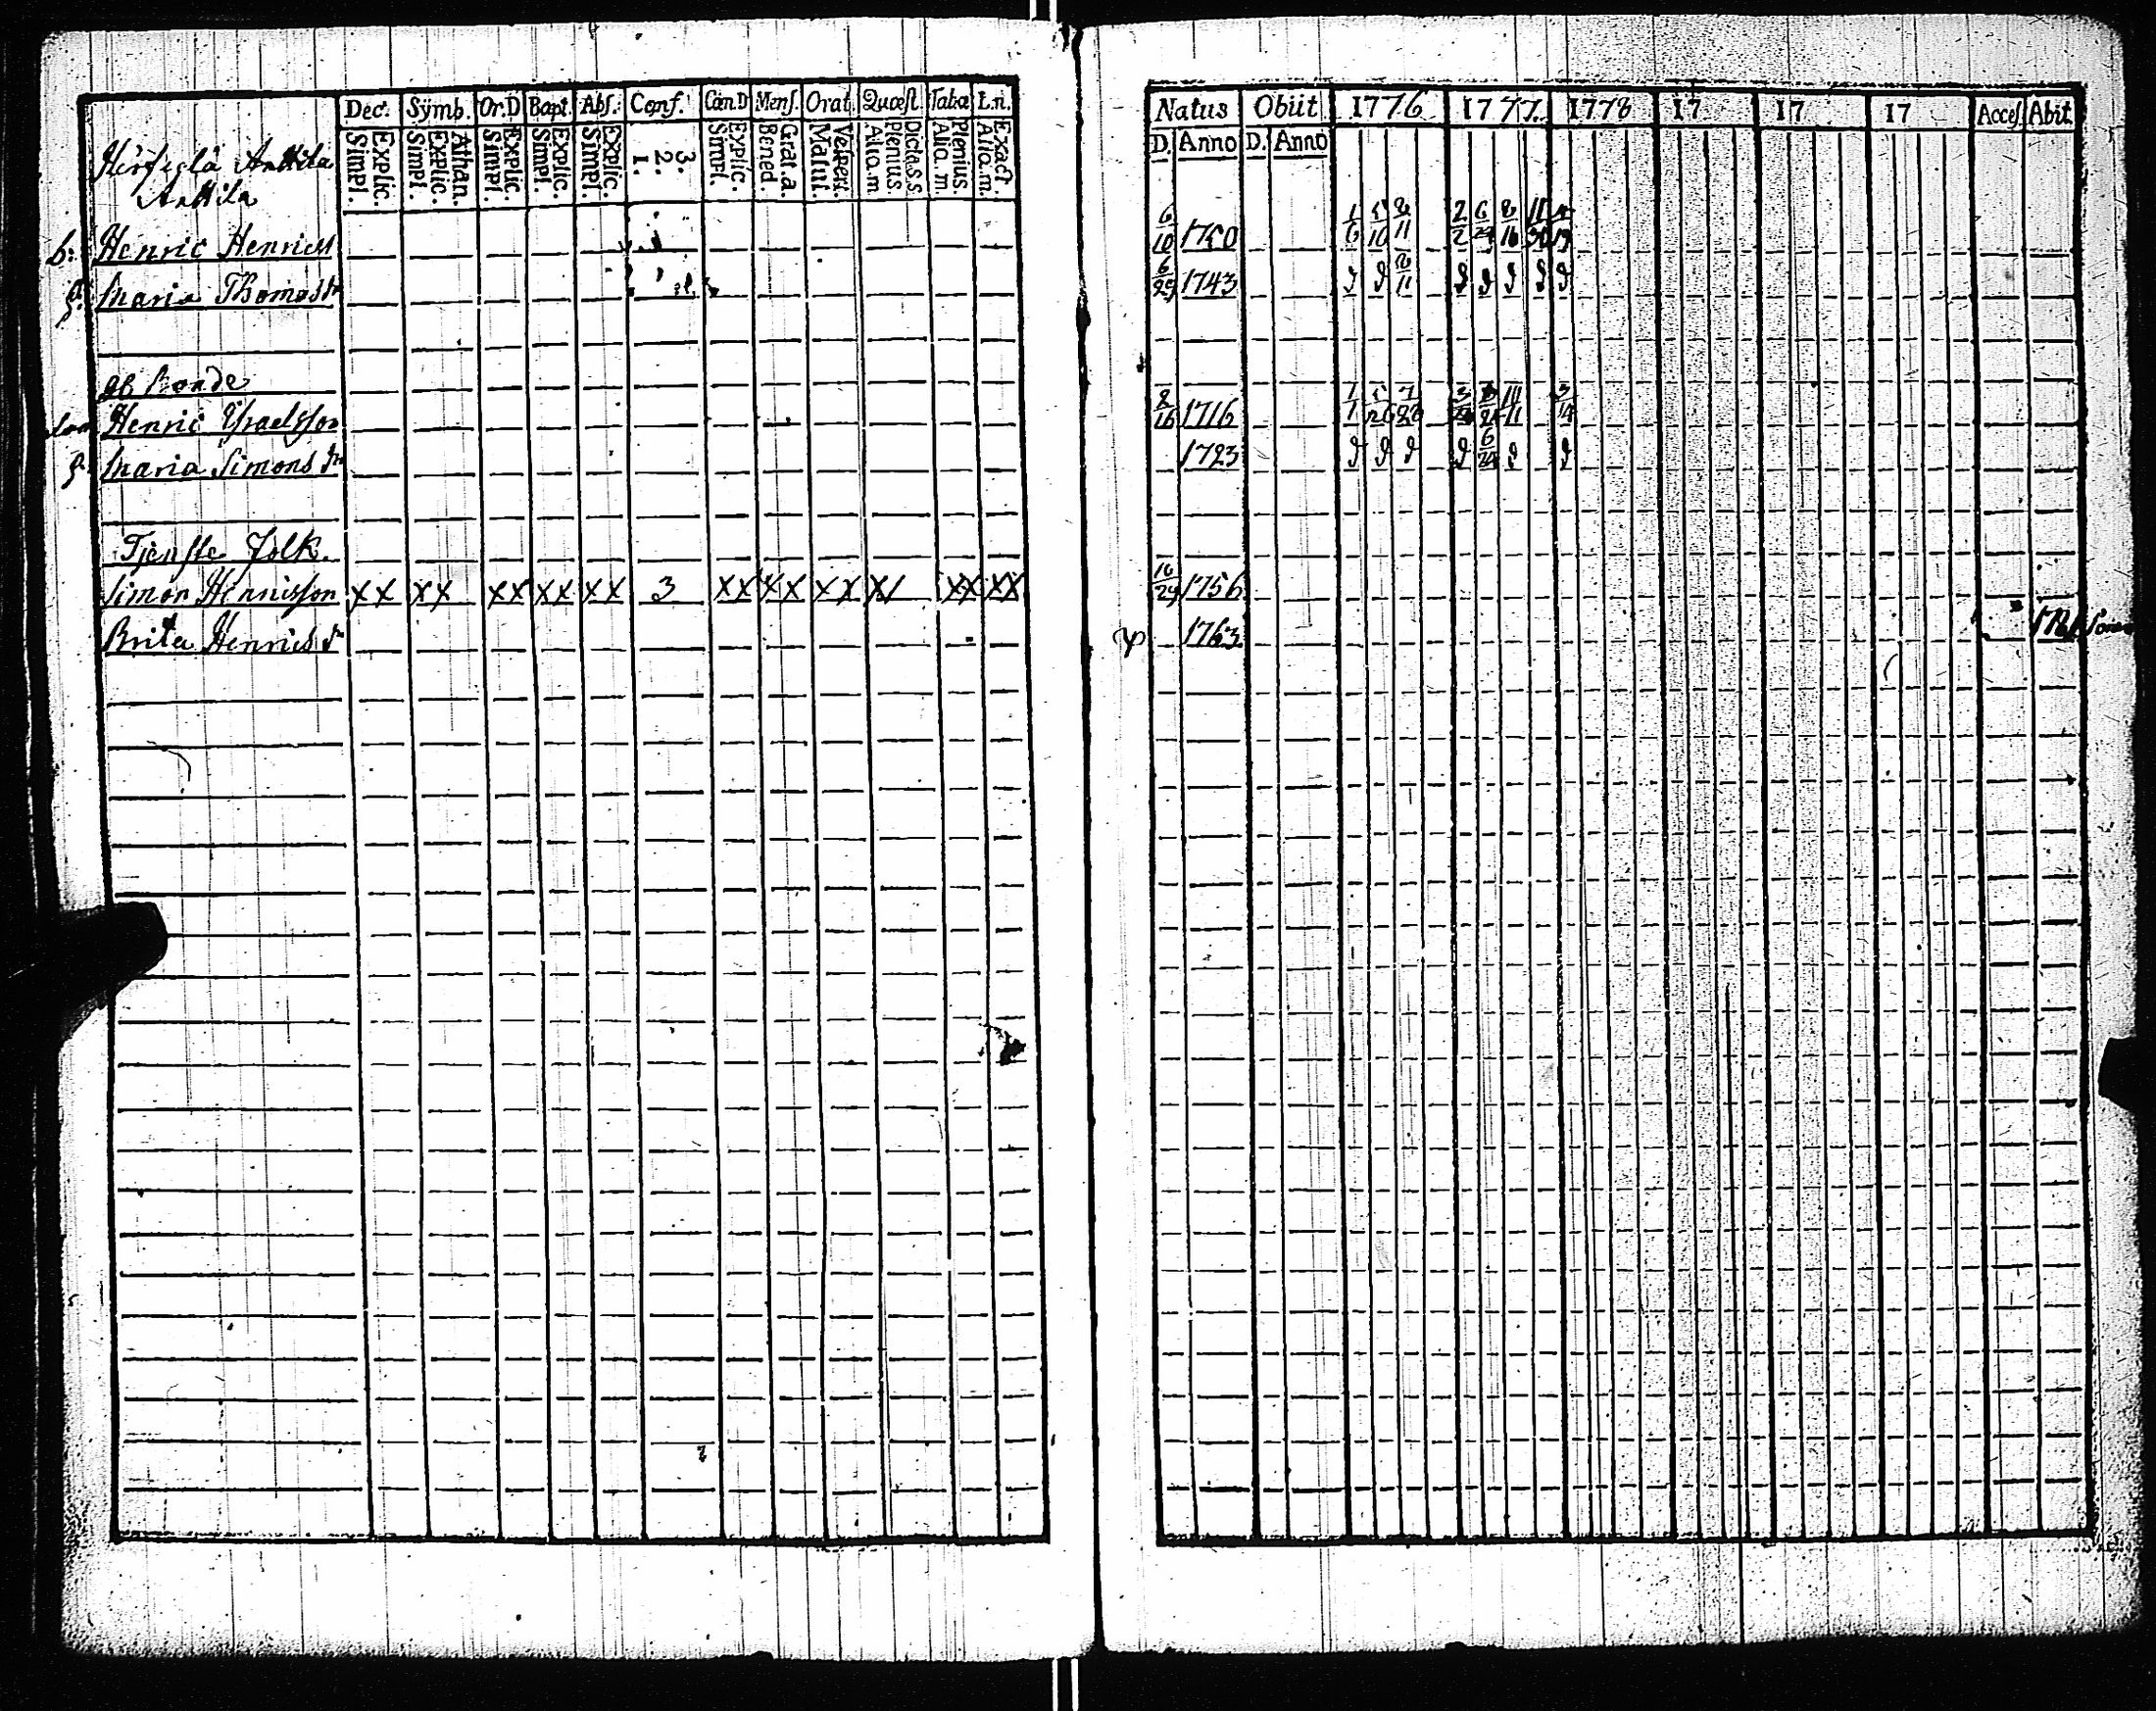 Dec. Symb. Or.D Bapt. Abs. Conf. Cœn.D Mens. Orat. Quæst. Taba L.n.
Simpl. Explic. Simpl. Explic. Athan. Simpl. Explic. Simpl. Explic. Simpl. Explic. 1. 2. 3. Simpl. Explic. Bened. Grat.a. Matut. Vespert. Alia.m. Plenius. Dicta.s.s. Alia.m. Plenius. Alia.m. Exact.
Anttila
Anttila
b: Henric Henricss
Maria Thomasdr
Bonde
Henric Israelsson
Maria Simonsdr
Tjenste Folk.
Simon Henricsson xx xx xx xx xx 3 xx xx xx x/ xx xx
Brita Henricsdr
Natus Obiit 1776 1777 1778 17 17 17 Acces. Abit
D. Anno D. Anno
6/10 1750 1/6 5/10 8/11 2/2 6/29 8/16
6/29 1743 8/11
8/16 1716 1/1 5/26 7/28 10/11 3/14
1723 6/24
10/29 1756
1763 1781